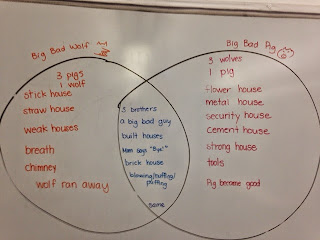 Big Bad Wolf
3 pigs
1 wolf
stick house
straw house
weak houses
breath
chimney
wolf ran away
3 brothers
a big bad guy
built houses
Mom says "Bye!"
brick house
blowing/huffing/
puffing
same
Big Bad Pig
3 wolves
1 pig
flower house
metal house
security house
cement house
strong house
tools
Pig became good